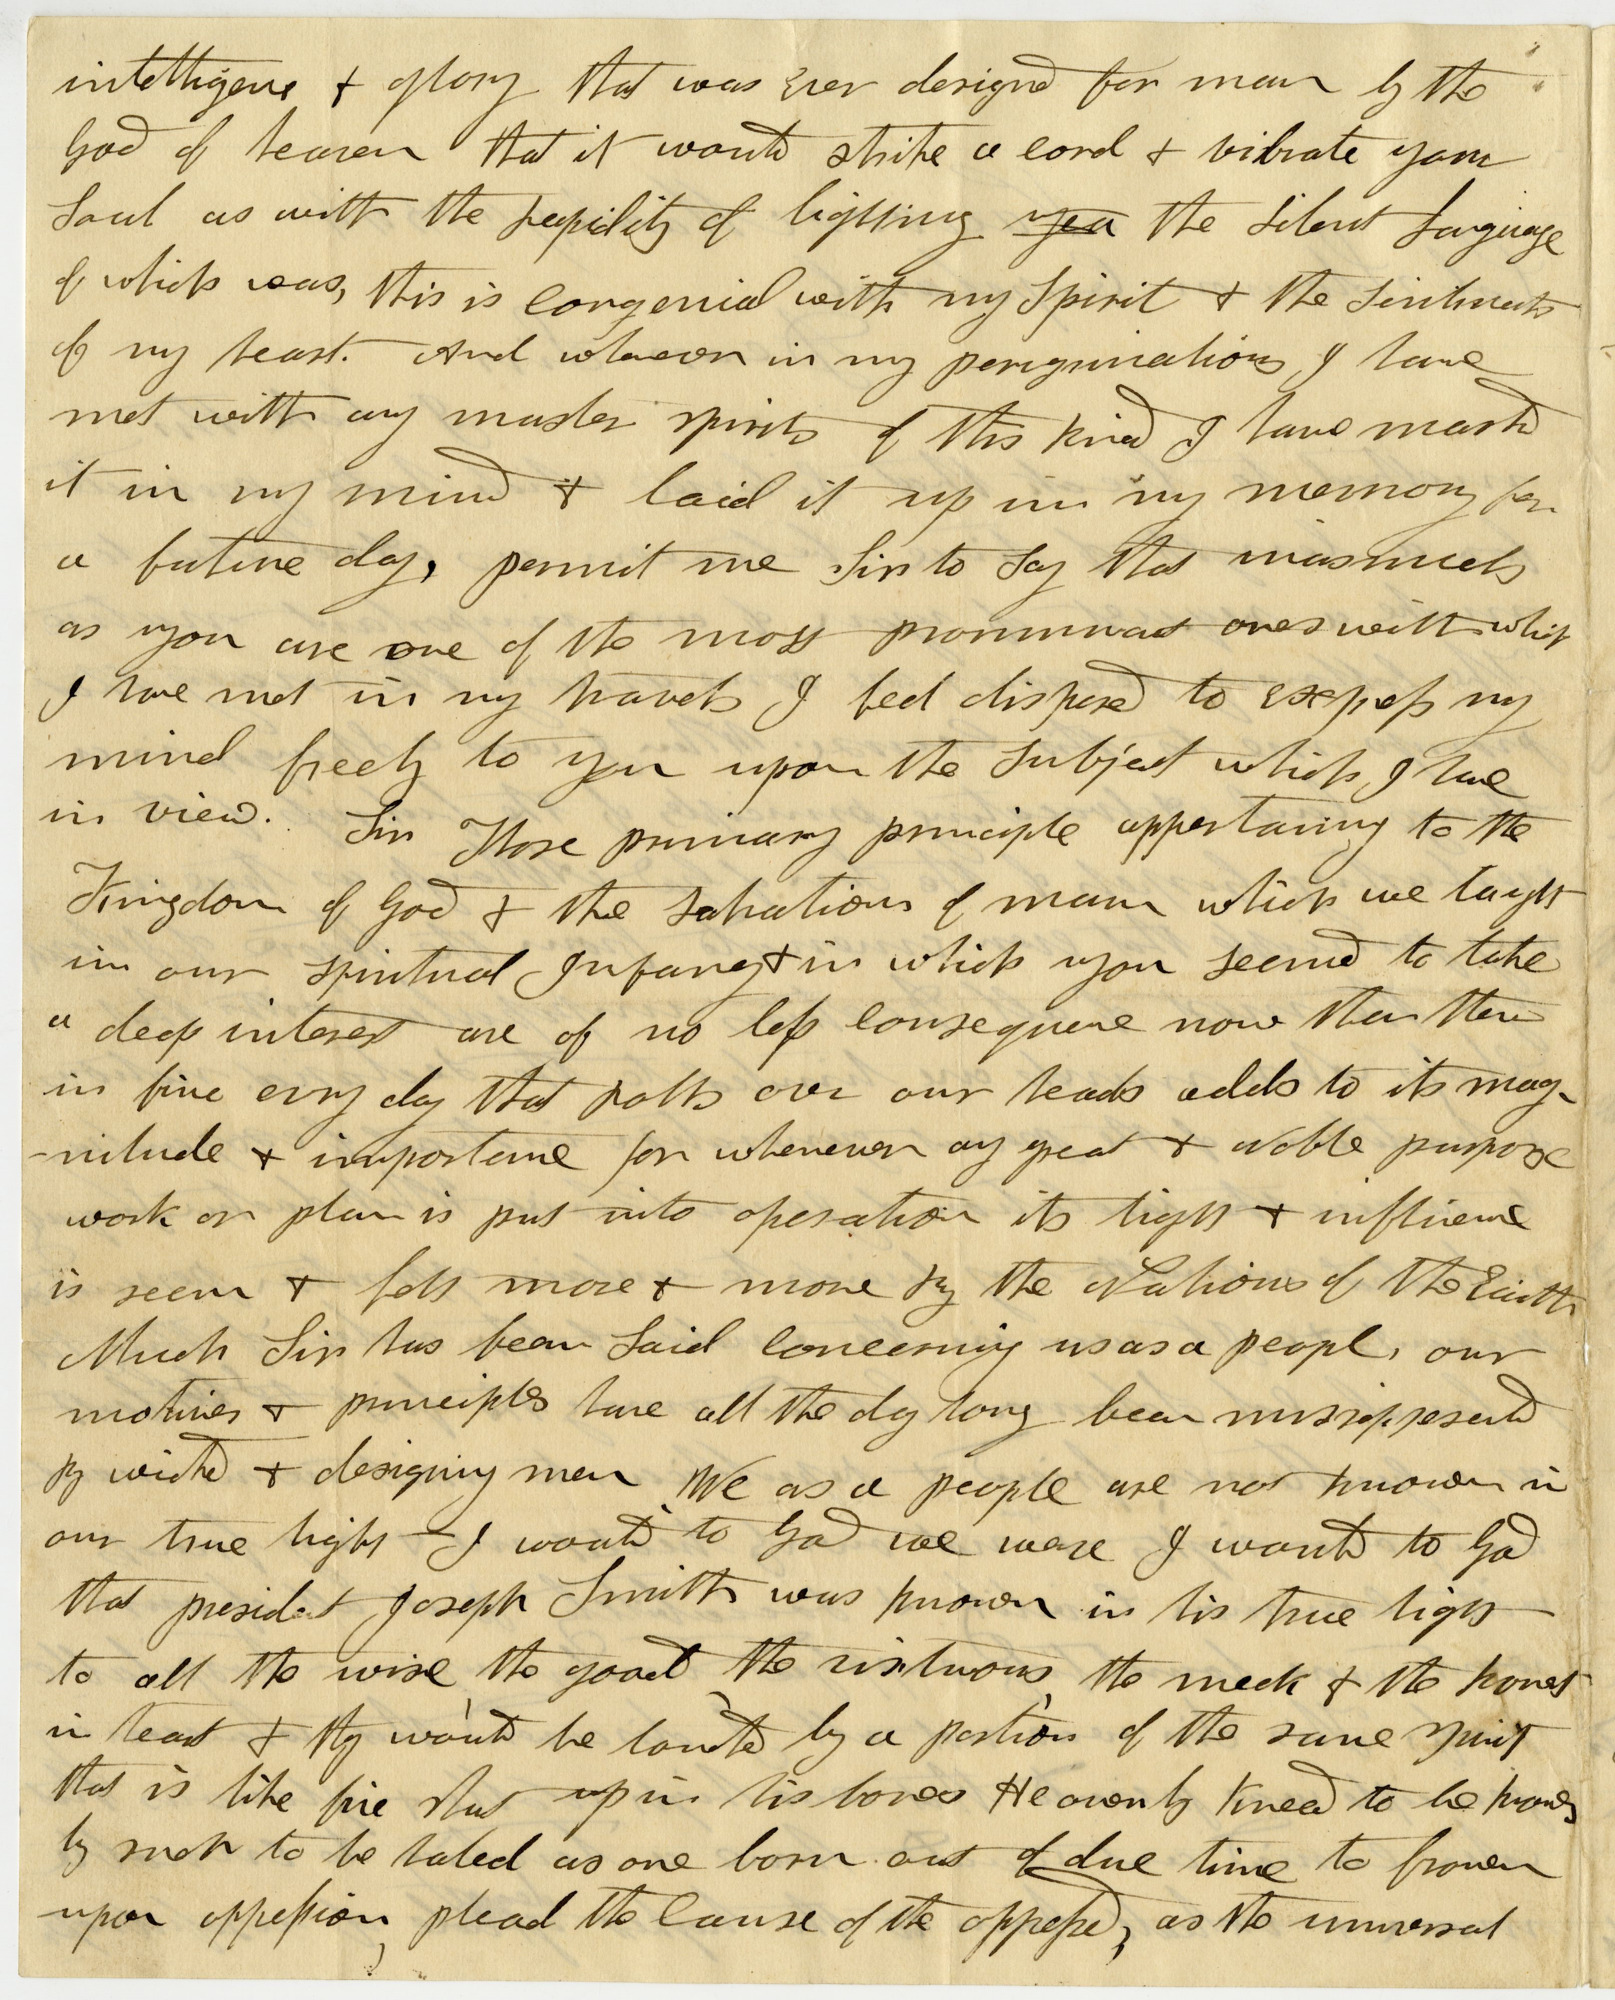 intelligence & glory that was ever designd for man by the
God of heaven that it would strike a cord & vibrate your
Soul as with the rapidity of lightning yea the silent language
of which was, this is congenial with my Spirit & the sentiments
of my heart. And whenever in my peregrinations I have
met with any master spirits of this kind I have markd
it in my mind & laid it up in my memory for
a future day, permit me Sir to Say that inasmuch
as you are one of the most prominant ones with which
I have met in my travels I feel disposed to express my
mind freely to you upon the Subject which I have
in view. Sir Those primary principle appertaining to the
Kingdom of God & the salvation of man which we taught
in our spiritual Infancy & in which you seemed to take
a deep interest are of no less consequence now than then
in fine evry day that rolls over our heads adds to its mag-
-nitude & importance for whenever any great & Noble purpose
work or plan is put into operation its light & influence
is seen & felt more & more by the Nations of the Earth
Much Sir has been Said concerning us as a people, our
motives & principles have all the day long been missrepresented
by wicked & designing men We as a people are not known in
our true light — I would to God we were I would to God
that president Joseph Smith was known in his true light
to all the wise the good the virtuous the meek & the honest
in heart & they would be by a portion of the same spirit
that is like fire shut up in his bones He only need to be known
by such to be hailed as one born out of due time to frown
upon oppression, plead the cause of the oppressed, as the universal